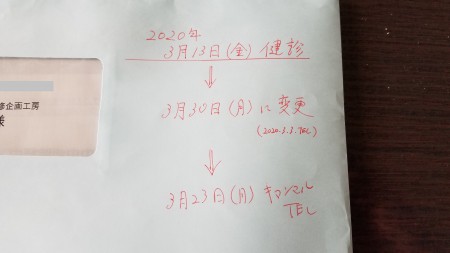 2020年
3月13日(金)健診
↓
3月30日(月)に変更
(2020.3.3.TEL)
↓
3月23日(月)キャンセル
TEL
修企画工房
様